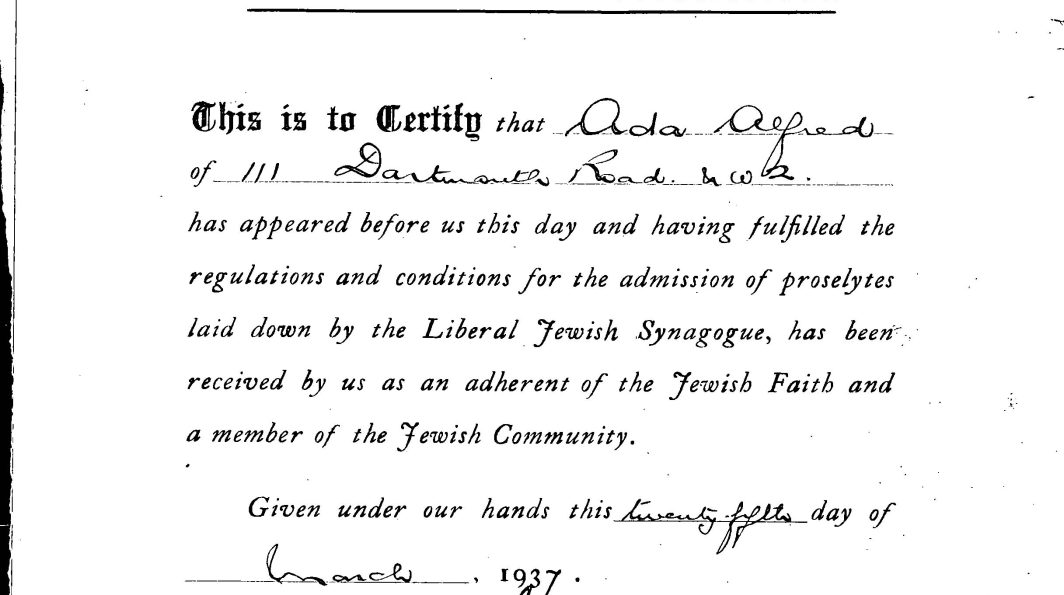 This is to Certify that Ada Alfred
of 111 Dartmouth Road. NW2.
has appeared before us this day and having fulfilled the
regulations and conditions for the admission of proselytes
laid down by the Liberal Jewish Synagogue, has been
received by us as an adherent of the Jewish Faith and
a member of the Jewish Community.
Given under our hands this twenty fifth day of
March, 1937.